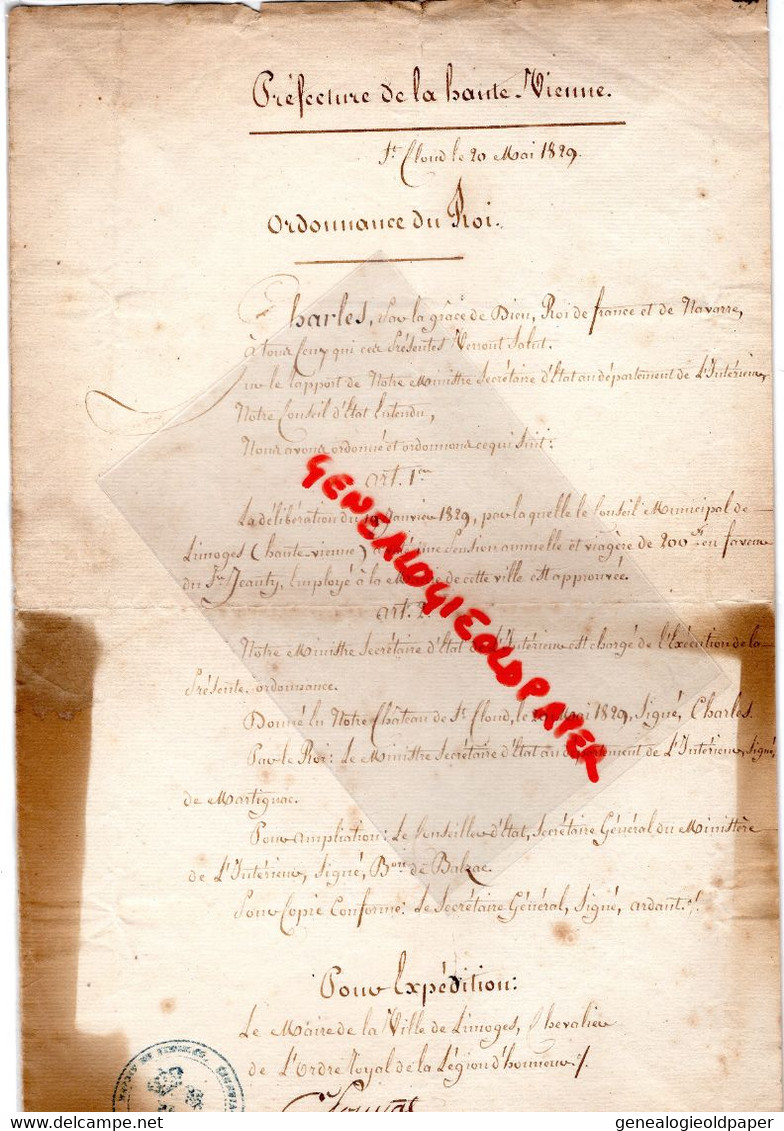 Préfecture de la haute-Vienne.
St. Cloud le 20 Mai 1829.
Ordonnance du Roi.
Charles, Par la grâce de Dieu, Roi de france et de Navarre,
à tous Ceux qui ces Présentes Verront Salut.
Sur le rapport de Notre Ministre Secrétaire d'Etat au département de L'Intérieur,
Notre Conseil d'Etat Entendu,
Nous avons ordonné et ordonnons ce qui Suit:
art. 1er
La délibération du Janvier 1829, par laquelle le Conseil Municipal de
Limoges (haute-vienne) une Pension annuelle et viagère de 200 fr en faveur
du Sr. Jeauty, Employé à la Mairie de cette ville est approuvée.
art. 2.
Notre Ministre Secrétaire d'Etat de L'Intérieur est chargé de l'Exécution de la
Présente ordonnance.
Donné En Notre Château de St. Cloud, le 20 Mai 1829, Signé, Charles.
Par le Roi: Le Ministre Secrétaire d'Etat au département de L'Intérieur, signé,
de Martignac.
Pour ampliation: Le Conseiller d'Etat, Secrétaire Général du Ministère
de L'Intérieur, Signé, Bon. de Balzac.
Pour Copie Conforme: Le Secrétaire Général, Signé, ardant./.
Pour Expédition:
Le Maire de la Ville de Limoges, Chevalier
de L'Ordre Royal de la Légion d'honneur /.
GENEALOGIEOLDPAPER
genealogieoldpaper